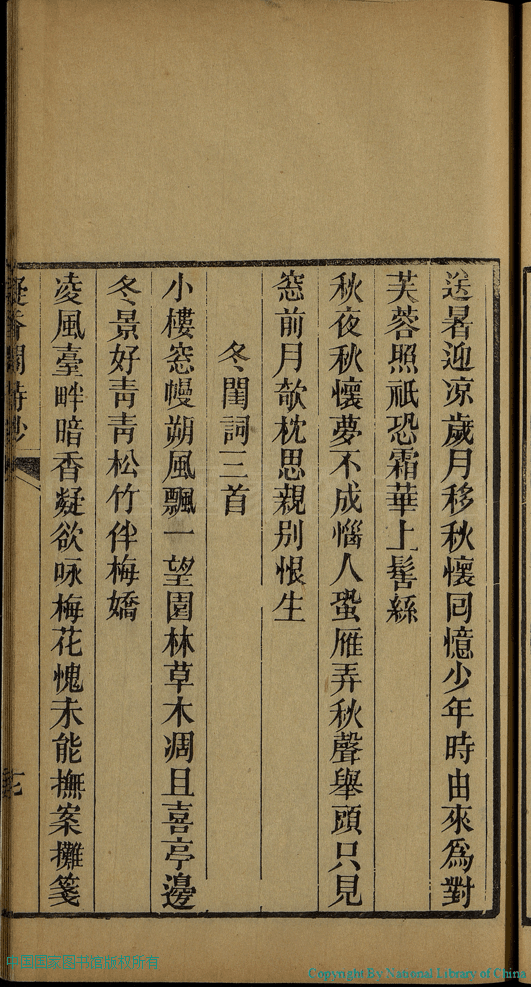 送暑迎凉歲月移秋懷回憶少年時由來爲對
芙蓉照祇恐霜華上髩絲
秋夜秋懷夢不成惱人蛩雁弄秋聲舉頭只見
窓前月欹枕思親别恨生
冬閨詞三首
小樓窓幔朔風飄一望園林草木凋且喜亭邊
冬景好靑靑松竹伴梅嬌
凌風臺畔暗香凝欲咏梅花愧未能撫案攤箋
凝香閣詩鈔
七
中国国家图书馆版权所有
Copyright By National Library of China